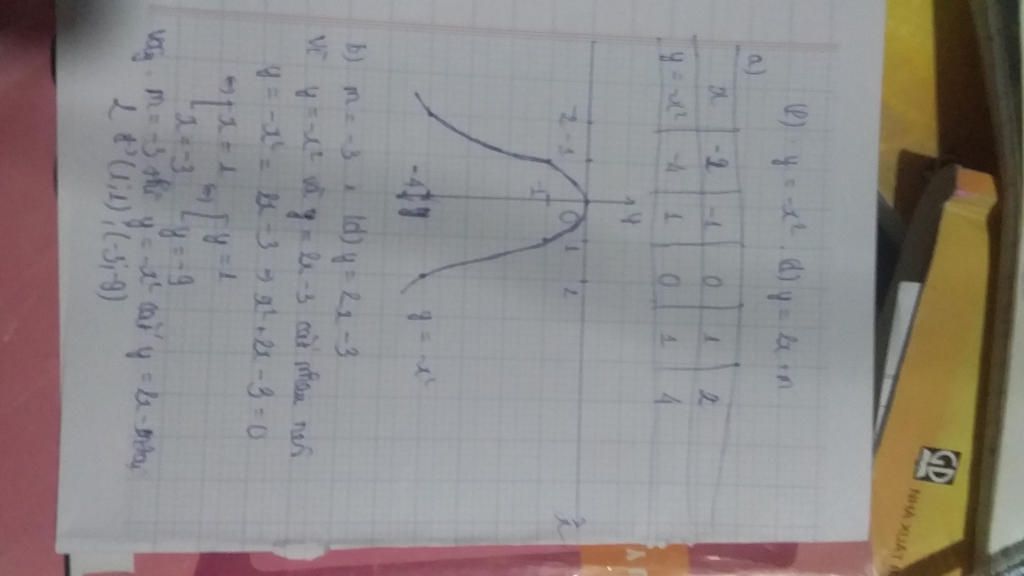 (P) y = -x². (d) y = 2x + m
a)
x | -2 | -1 | 0 | 1 | 2
y = -x² | -4 | 1 | 0 | 1 | 4
y
-2 -1 O 1 2 x
-1
-4
y = -x²
b) m = -3, (d) y = 2x - 3
Vì y = -x² và y = 2x - 3 cắt nhau nên
y = -x² = 2x - 3 ⇒ x² + 2x - 3 = 0
⇔ [x = 1 ⇔ [y = 1
[x = -3 [y = -9
Vậy m = -3 thì y = -x² cắt y = 2x - 3 tại
2 (1; 1) (-3; -9)
GD
NHÀ XUẤT